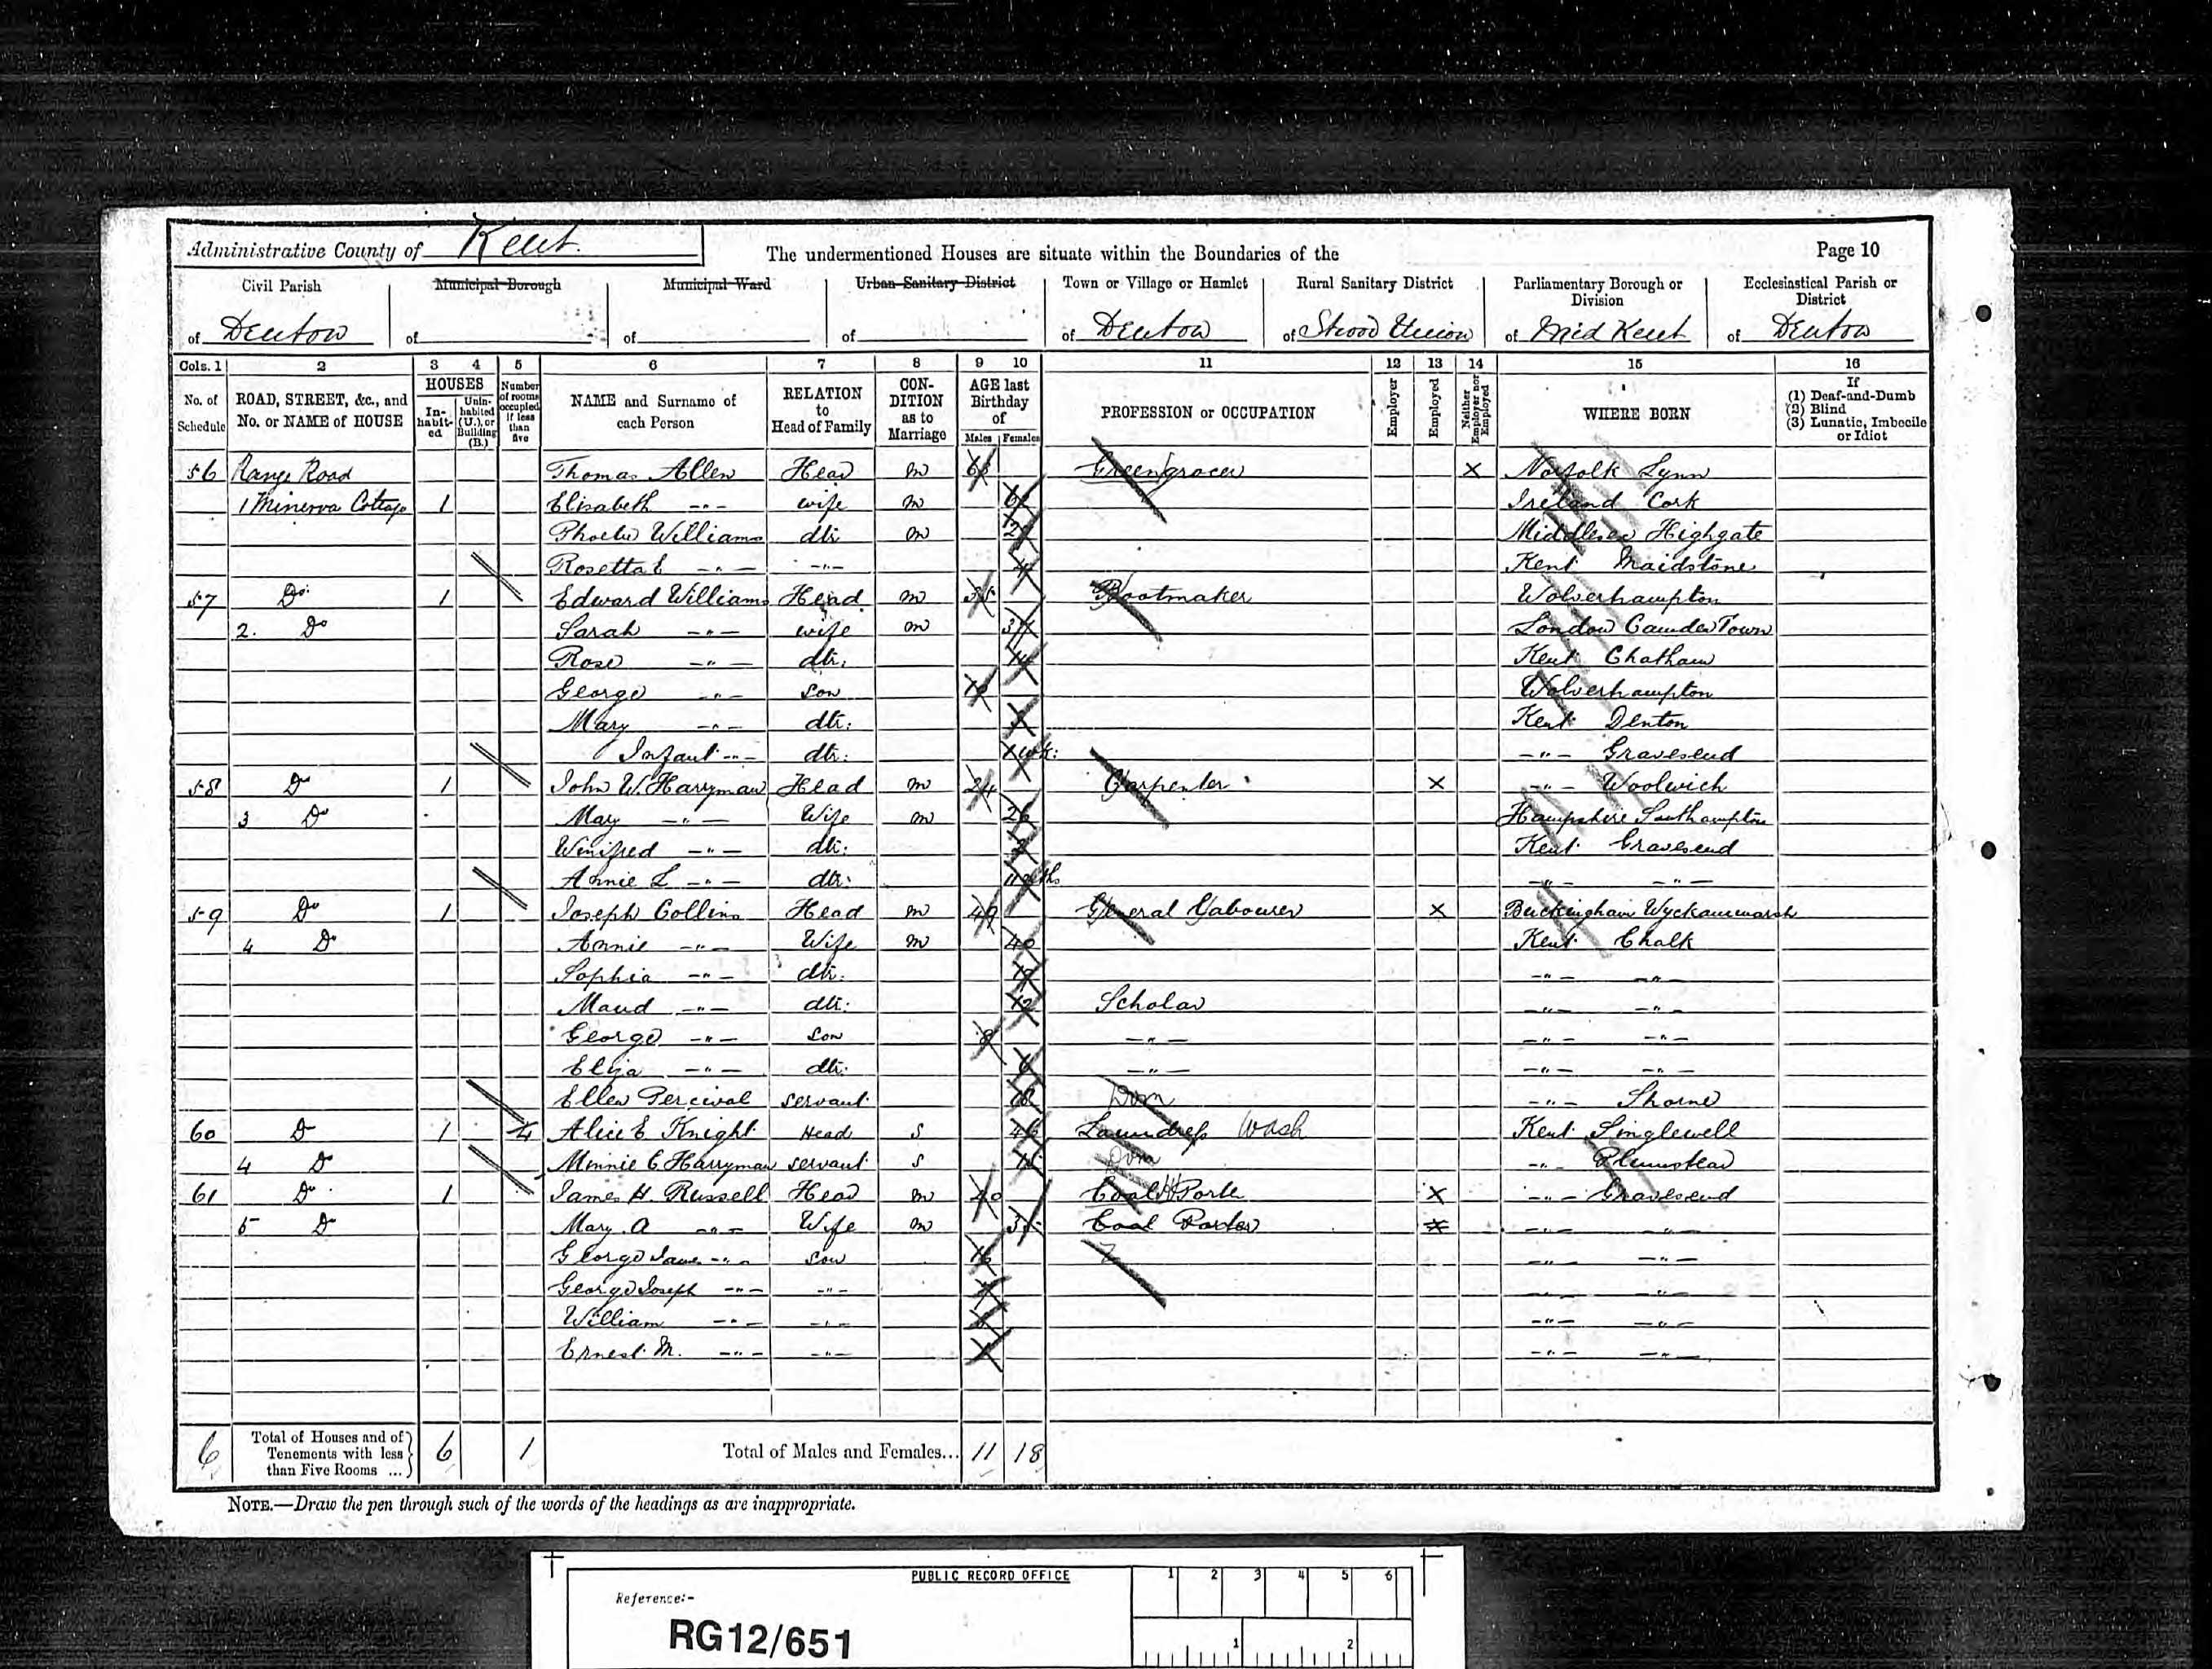 Administrative County of Kent
The undermentioned Houses are situate within the Boundaries of the
Page 10
Civil Parish Municipal Borough Municipal Ward Urban Sanitary District Town or Village or Hamlet Rural Sanitary District Parliamentary Borough or Division Ecclesiastical Parish or District
of Denton of of of of Denton of Strood Union of Mid Kent of Denton
Cols. 1 2 3 4 5 6 7 8 9 10 11 12 13 14 15 16
No. of Schedule ROAD, STREET, &c., and No. or NAME of HOUSE HOUSES In-habit-ed Unin-habited (U.), or Building (B.) Number of rooms occupied if less than five NAME and Surname of each Person RELATION to Head of Family CON-DITION as to Marriage AGE last Birthday of Males Females PROFESSION or OCCUPATION Employer Employed Neither Employer nor Employed WHERE BORN If (1) Deaf-and-Dumb (2) Blind (3) Lunatic, Imbecile or Idiot
56 Range Road Thomas Allen Head m Greengrocer X Norfolk Lynn
1 Minerva Cottage 1 Elisabeth -"- wife m Ireland Cork
Phoebe Williams dtr m Middlesex Highgate
Rosetta E -"- -"- 4 Kent Maidstone
57 Do 1 Edward Williams Head m Bootmaker Wolverhampton
2. Do Sarah -"- wife m London Camden Town
Rose -"- dtr. 14 Kent Chatham
George -"- Son Wolverhampton
Mary -"- dtr: Kent Denton
Infant -"- dtr: wk: -"- Gravesend
58 Do 1 John W. Harryman Head m 24 Carpenter X -"- Woolwich
3 Do Mary -"- Wife m 26 Hampshire Southampton
Winifred -"- dtr: Kent Gravesend
Annie L -"- dtr: 11 mths -"- -"-
59 Do 1 Joseph Collins Head m 49 General Labourer X Buckingham Wyckammarsh
4 Do Annie -"- Wife m 40 Kent Chalk
Sophia -"- dtr: -"- -"-
Maud -"- dtr: 12 Scholar -"- -"-
George -"- Son 8 -"- -"- -"-
Eliza -"- dtr: -"- -"- -"-
Ellen Percival servant 18 Dom -"- Shorne
60 Do 1 4 Alice E Knight Head S 46 Laundress Wash Kent Singlewell
4 Do Minnie C Harryman servant S Dom -"- Plumstead
61 Do 1 James H. Russell Head m 40 Coal Porter X -"- Gravesend
5 Do Mary A -"- Wife m Coal Porter X -"- -"-
George James -"- Son 16 -"- -"-
George Joseph -"- -"- -"- -"-
William -"- -"- -"- -"-
Ernest M. -"- -"- -"- -"-
6 Total of Houses and of Tenements with less than Five Rooms ... 6 1 Total of Males and Females... 11 18
NOTE.—Draw the pen through such of the words of the headings as are inappropriate.
PUBLIC RECORD OFFICE
Reference:-
RG12/651
1 2 3 4 5 6
1 2